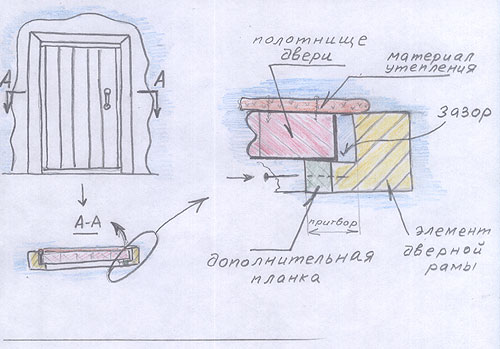 полотнище
двери
материал
утепления
А
А
зазор
А-А
притвор
дополнительная
планка
элемент
дверной
рамы